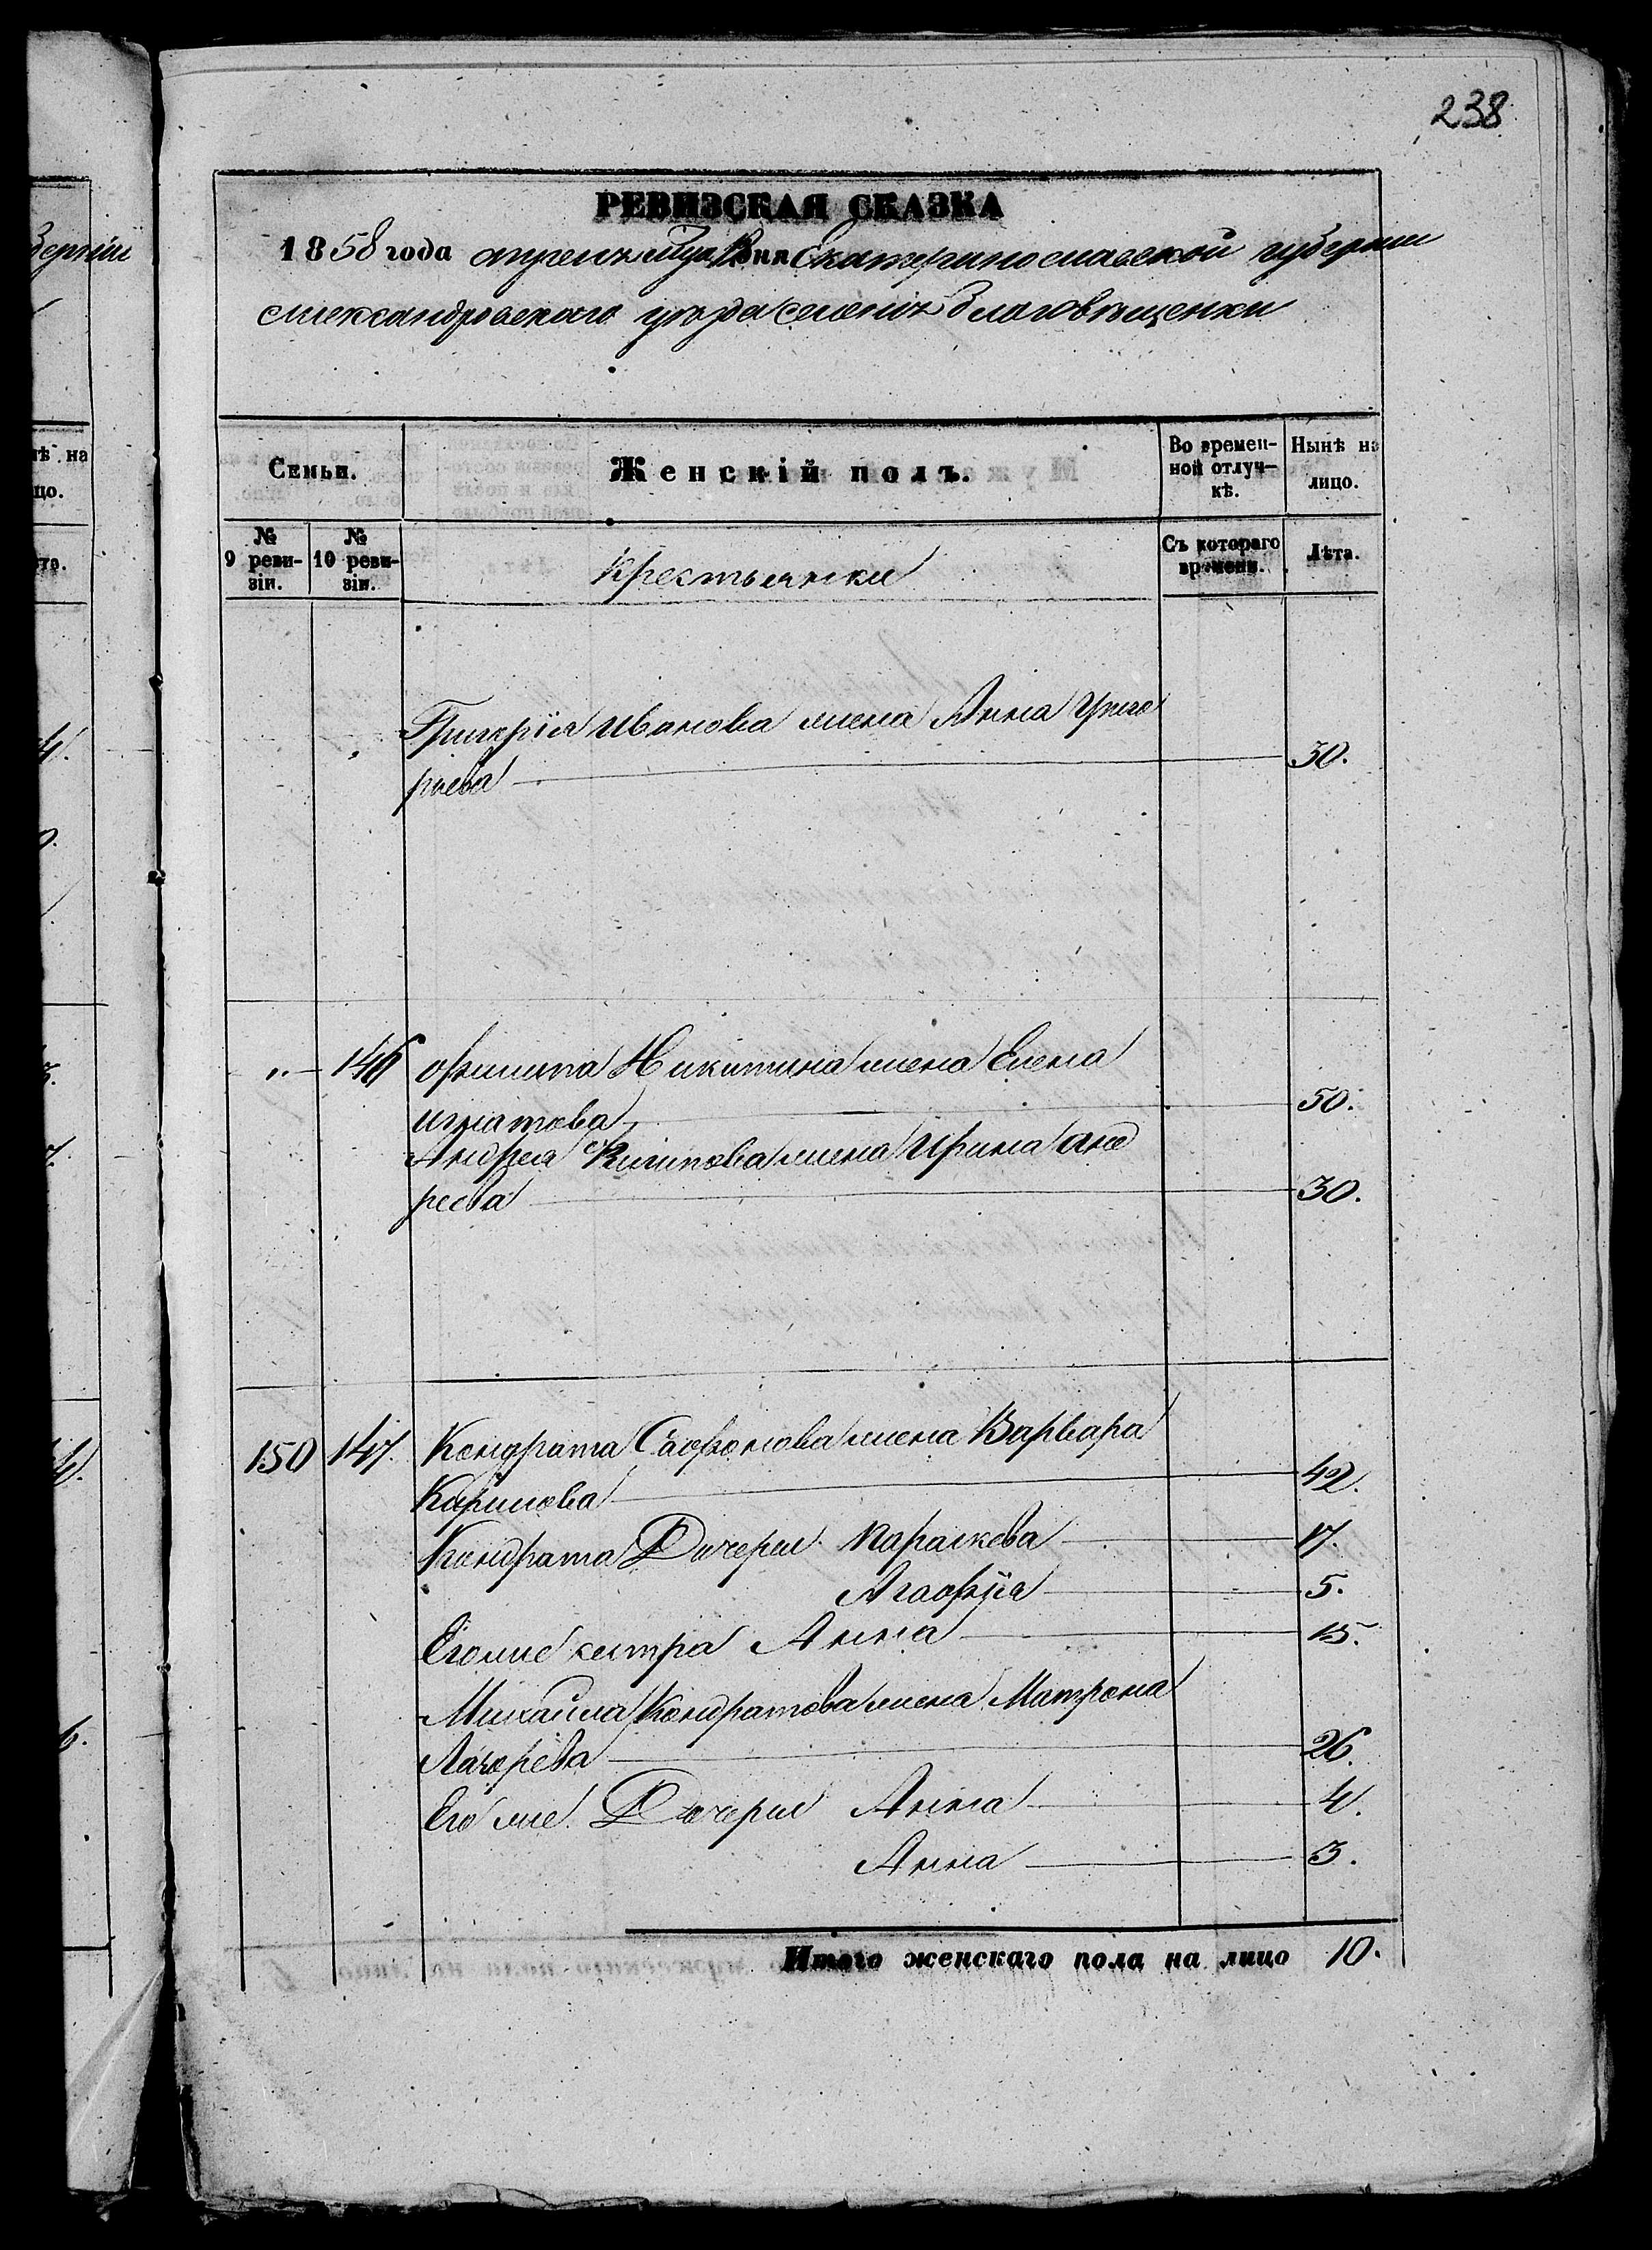 238
РЕВИЗСКАЯ СКАЗКА
1858 года апреля дня Екатеринославской губернии
Александровского уезда селения Благовещенки
Семьи.
Женскій полъ.
Во времен-
ной отлуч-
кѣ.
Нынѣ на
лицо.
№
9 реви-
зіи.
№
10 реви-
зіи.
Крестьянки
Съ котораго
времени.
Лѣта.
Григорія Иванова жена Анна Григо
рьева 30.
„ 146 Филипа Никитина жена Елена
Игнатова 50.
Андрея Филипова жена Ирина Анд
реева 30.
150 147. Кондрата Сафонова жена Варвара
Карпова 42.
Кондрата Дочери Параскева 17.
Агафія 5.
Егоже сестра Анна 15.
Михайла Кондратова жена Матрона
26.
Его же Дочери Анна 4.
Анна 3.
Итого женскаго пола на лицо 10.